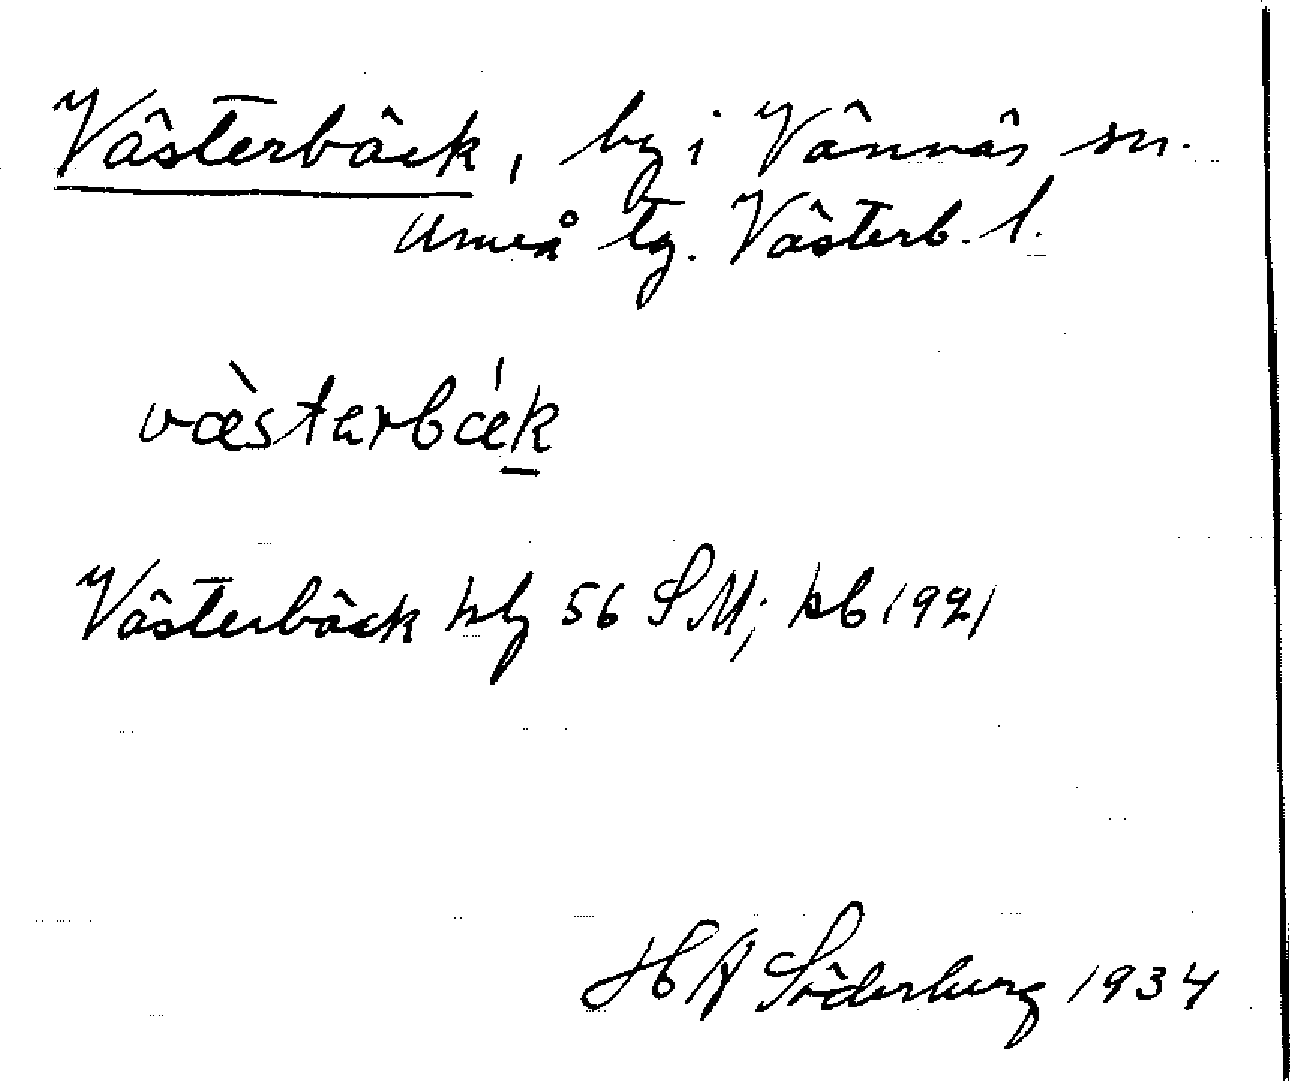 Västerbäck, by i Vännäs sn.
Umeå tg. Västerb. l.
væ̀sterbǽk̲
Västerbäck hly 56 SM; kb 1921
H A Söderberg 1934